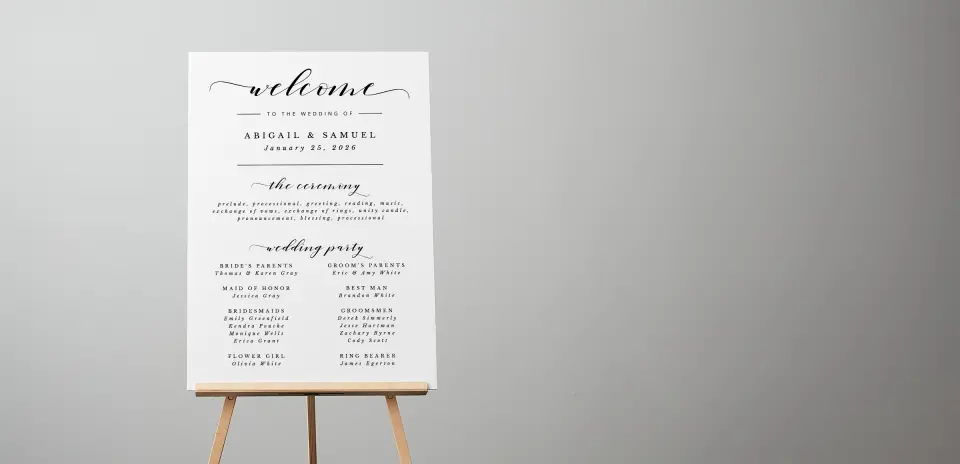 welcome
TO THE WEDDING OF
ABIGAIL & SAMUEL
January 25, 2026
the ceremony
prelude, processional, greeting, reading, music,
exchange of vows, exchange of rings, unity candle,
pronouncement, blessing, processional
wedding party
BRIDE'S PARENTS
Thomas & Karen Gray
MAID OF HONOR
Jessica Gray
BRIDESMAIDS
Emily Greenfield
Kendra Pouche
Monique Wells
Erica Grant
FLOWER GIRL
Olivia White
GROOM'S PARENTS
Eric & Amy White
BEST MAN
Brandon White
GROOMSMEN
Derek Simmerly
Jesse Hartman
Zachary Byrne
Cody Scott
RING BEARER
James Egerton